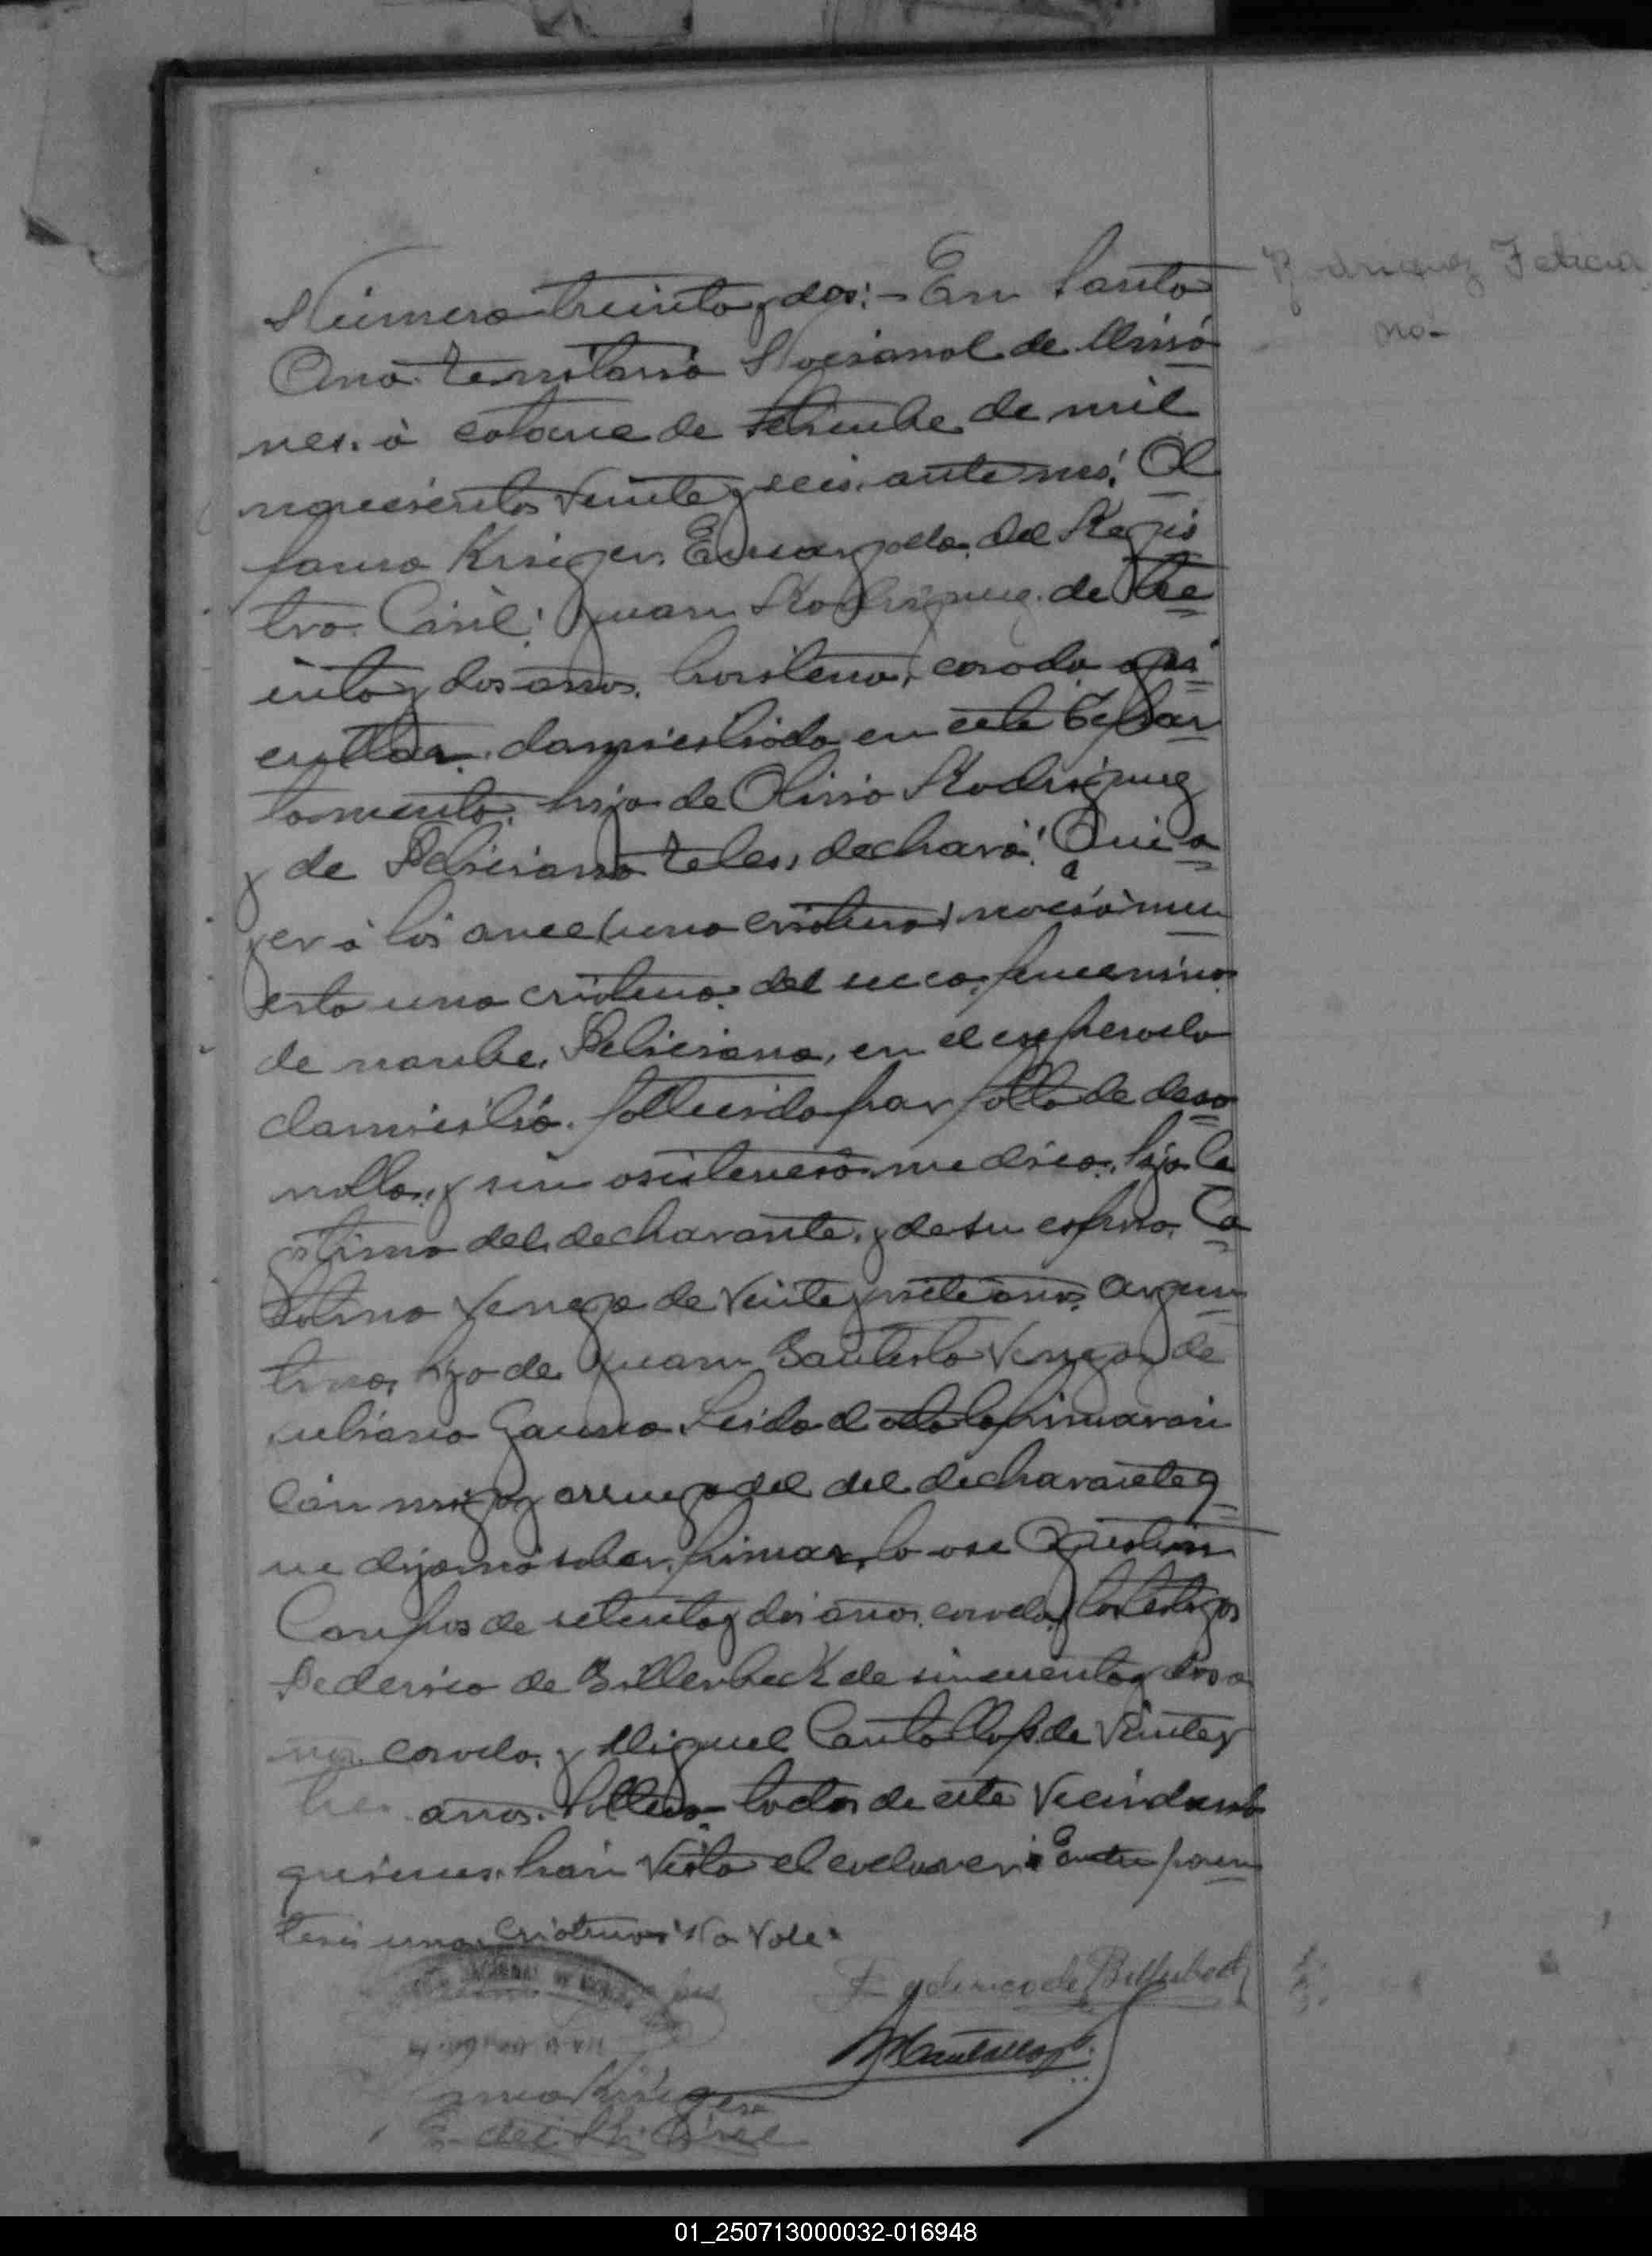 Rodriguez Felicia
na-
Número treinta y dos:- En Santa
Ana territorio Nacional de Misio
nes. á catorce de setiembre de mil
novecientos veinte y seis. ante mi: Al
fonso Krieger. Encargado del Regis
tro. Civil: Juan Rodriguez. de tre
inta y dos años. brasilero, casado agri
cultor. domiciliado en este Depar
tamento. hijo de Olivio Rodriguez
y de Feliciana teles, declaró: Que a
yer á las once (una criatura) nació mu
erta una criatura del sexo femenino
de nombre, Feliciana, en el expresado
domicilio. fallecida por falta de desa
rrollo, y sin asistencia medica. hija le
gitima del declarante. y de su esposa. Ca
talina Venega de veinte y siete años. argen
tina, hija de Juan Bautista Venega y de
Juliana Gauna. Leida el acta la firmaron
con migo y a ruego del del declarante q
ue dijo no saber firmar, lo ase Agustin
Campos de setenta y dos años. casado y los testigos
Federico de Billerbeck de sincuenta y dos a
ños. casado. y Miguel Cantallops de veinte y
tres años. soltero todos de este Vecindario
quienes han visto el cadaver: Entre paren
tesis una criatura: No Vale:
Federico de Billerbeck
MCantallops
Krieger
E. del R. Civil
01_250713000032-016948